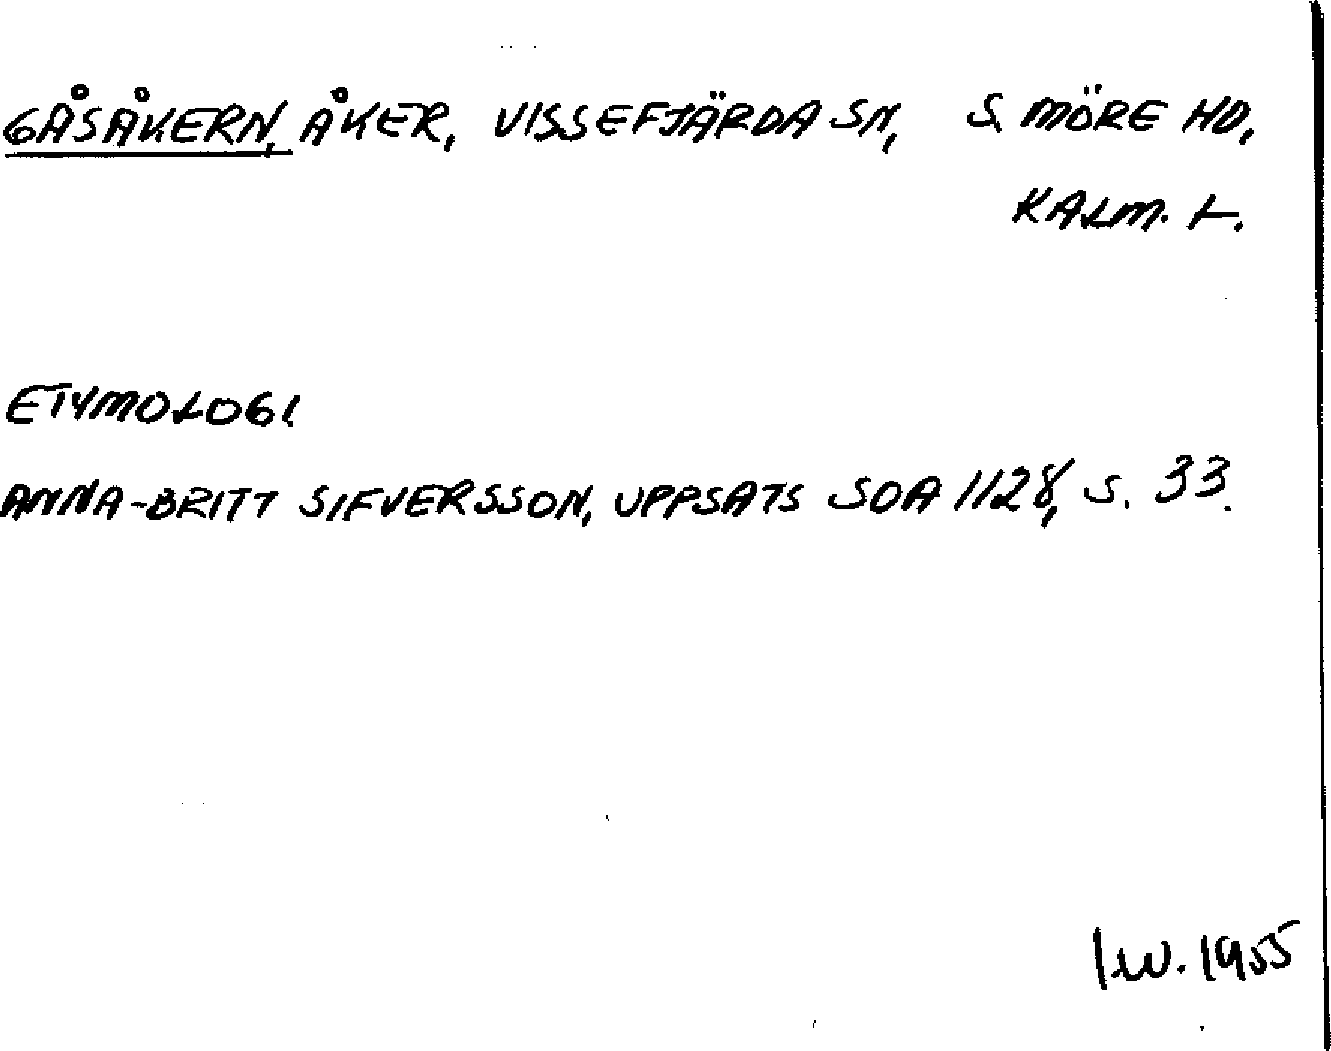 GÅSÅKERN, ÅKER, VISSEFJÄRDA SN, S. MÖRE HD,
KALM. L.
ETYMOLOGI
ANNA-BRITT SIFVERSSON, UPPSATS SOA 1128, S. 33.
I.W. 1955